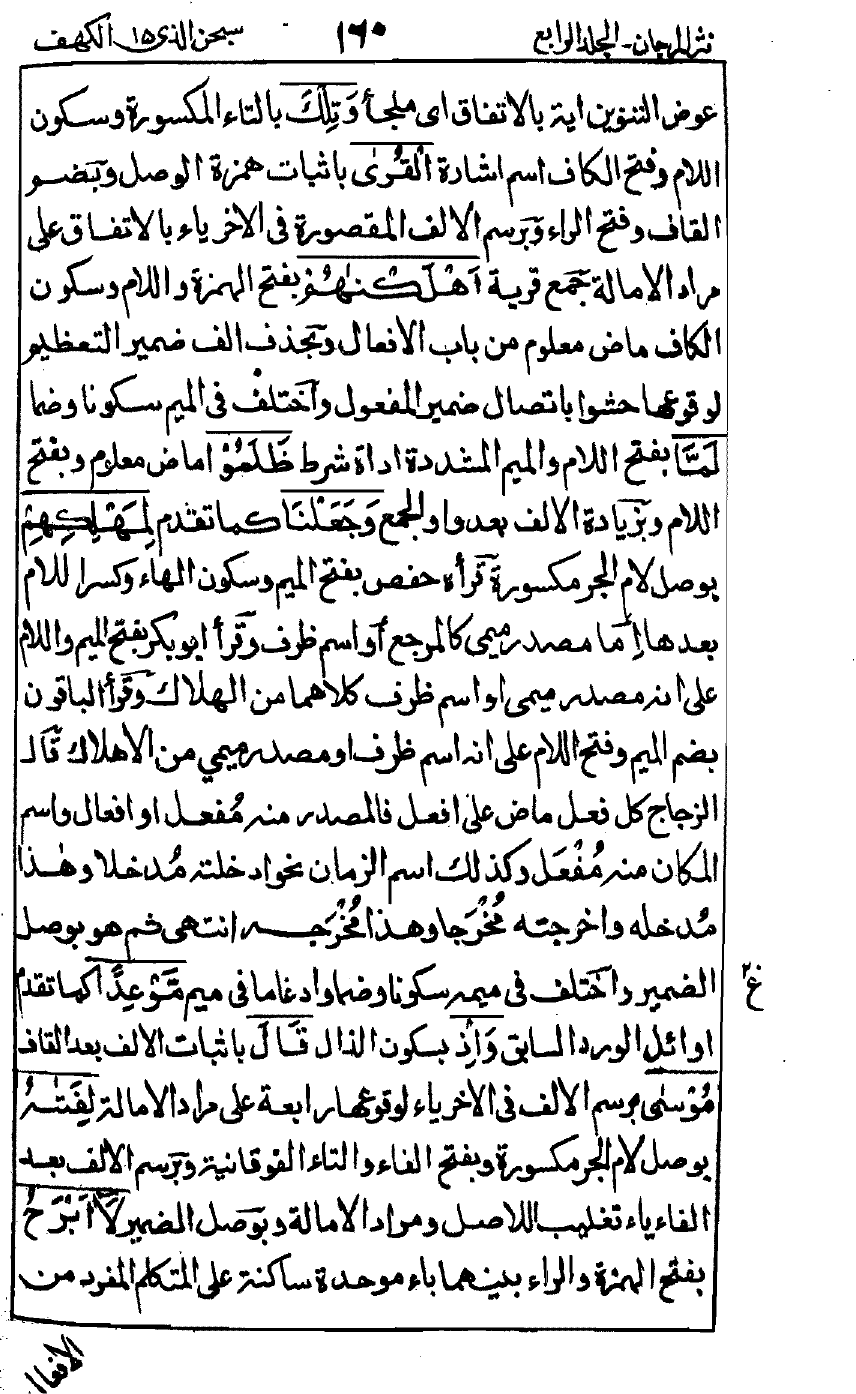 نثر المرجان - الجلد الرابع ١٦٠ سبحن الذى ١٥ الكهف
عوض التنوين اية بالاتفاق اى ملجأ وَتِلْكَ بالتاء المكسورة وسكون
اللام وفتح الكاف اسم اشارة الْقُرٰى باثبات همزة الوصل وبضم
القاف وفتح الراء وبرسم الالف المقصورة فى الاخر ياء بالاتفاق على
مراد الامالة جمع قرية اَهْلَكْنٰهُمْ بفتح الهمزة واللام وسكون
الكاف ماض معلوم من باب الافعال وبحذف الف ضمير التعظيم
لوقوعها حشوا باتصال ضمير المفعول واختلف فى الميم سكونا وضما
لَمَّا بفتح اللام والميم المشددة اداة شرط ظَلَمُوْا ماض معلوم وبفتح
اللام وبزيادة الالف بعد واو الجمع وَجَعَلْنَا كما تقدم لِمَهْلِكِهِمْ
بوصل لام الجر مكسورة قرأه حفص بفتح الميم وسكون الهاء وكسر اللام
بعدها اِمّا مصدر ميمى كالمرجع أو اسم ظرف وقرأ ابو بكر بفتح الميم واللام
على انه مصدر ميمى او اسم ظرف كلاهما من الهلاك وقرأ الباقون
بضم الميم وفتح اللام على انه اسم ظرف او مصدر ميمي من الاهلاك قال
الزجاج كل فعل ماض على افعل فالمصدر منه مُفعل او افعال واسم
المكان منه مُفْعَل وكذلك اسم الزمان نحو ادخلته مُدخلا وهٰذا
مُدخله واخرجته مُخْرَجا وهذا مُخْرَجه انتهى ثم هو بوصل
الضمير واختلف فى ميمه سكونا وضما وادغاما فى ميم مَّوْعِدًا كما تقدم
اوائل الورد السابق وَاِذْ بسكون الذال قَالَ باثبات الالف بعد القاف
مُوْسٰى برسم الالف فى الاخر ياء لوقوعها رابعة على مراد الامالة لِفَتٰىهُ
بوصل لام الجر مكسورة وبفتح الفاء والتاء الفوقانية وبرسم الالف بعد
الفاء ياء تغليبا للاصل ومراد الامالة وبوصل الضمير لَآ اَبْرَحُ
بفتح الهمزة والراء بينهما باء موحدة ساكنة على المتكلم المفرد من
الافعا